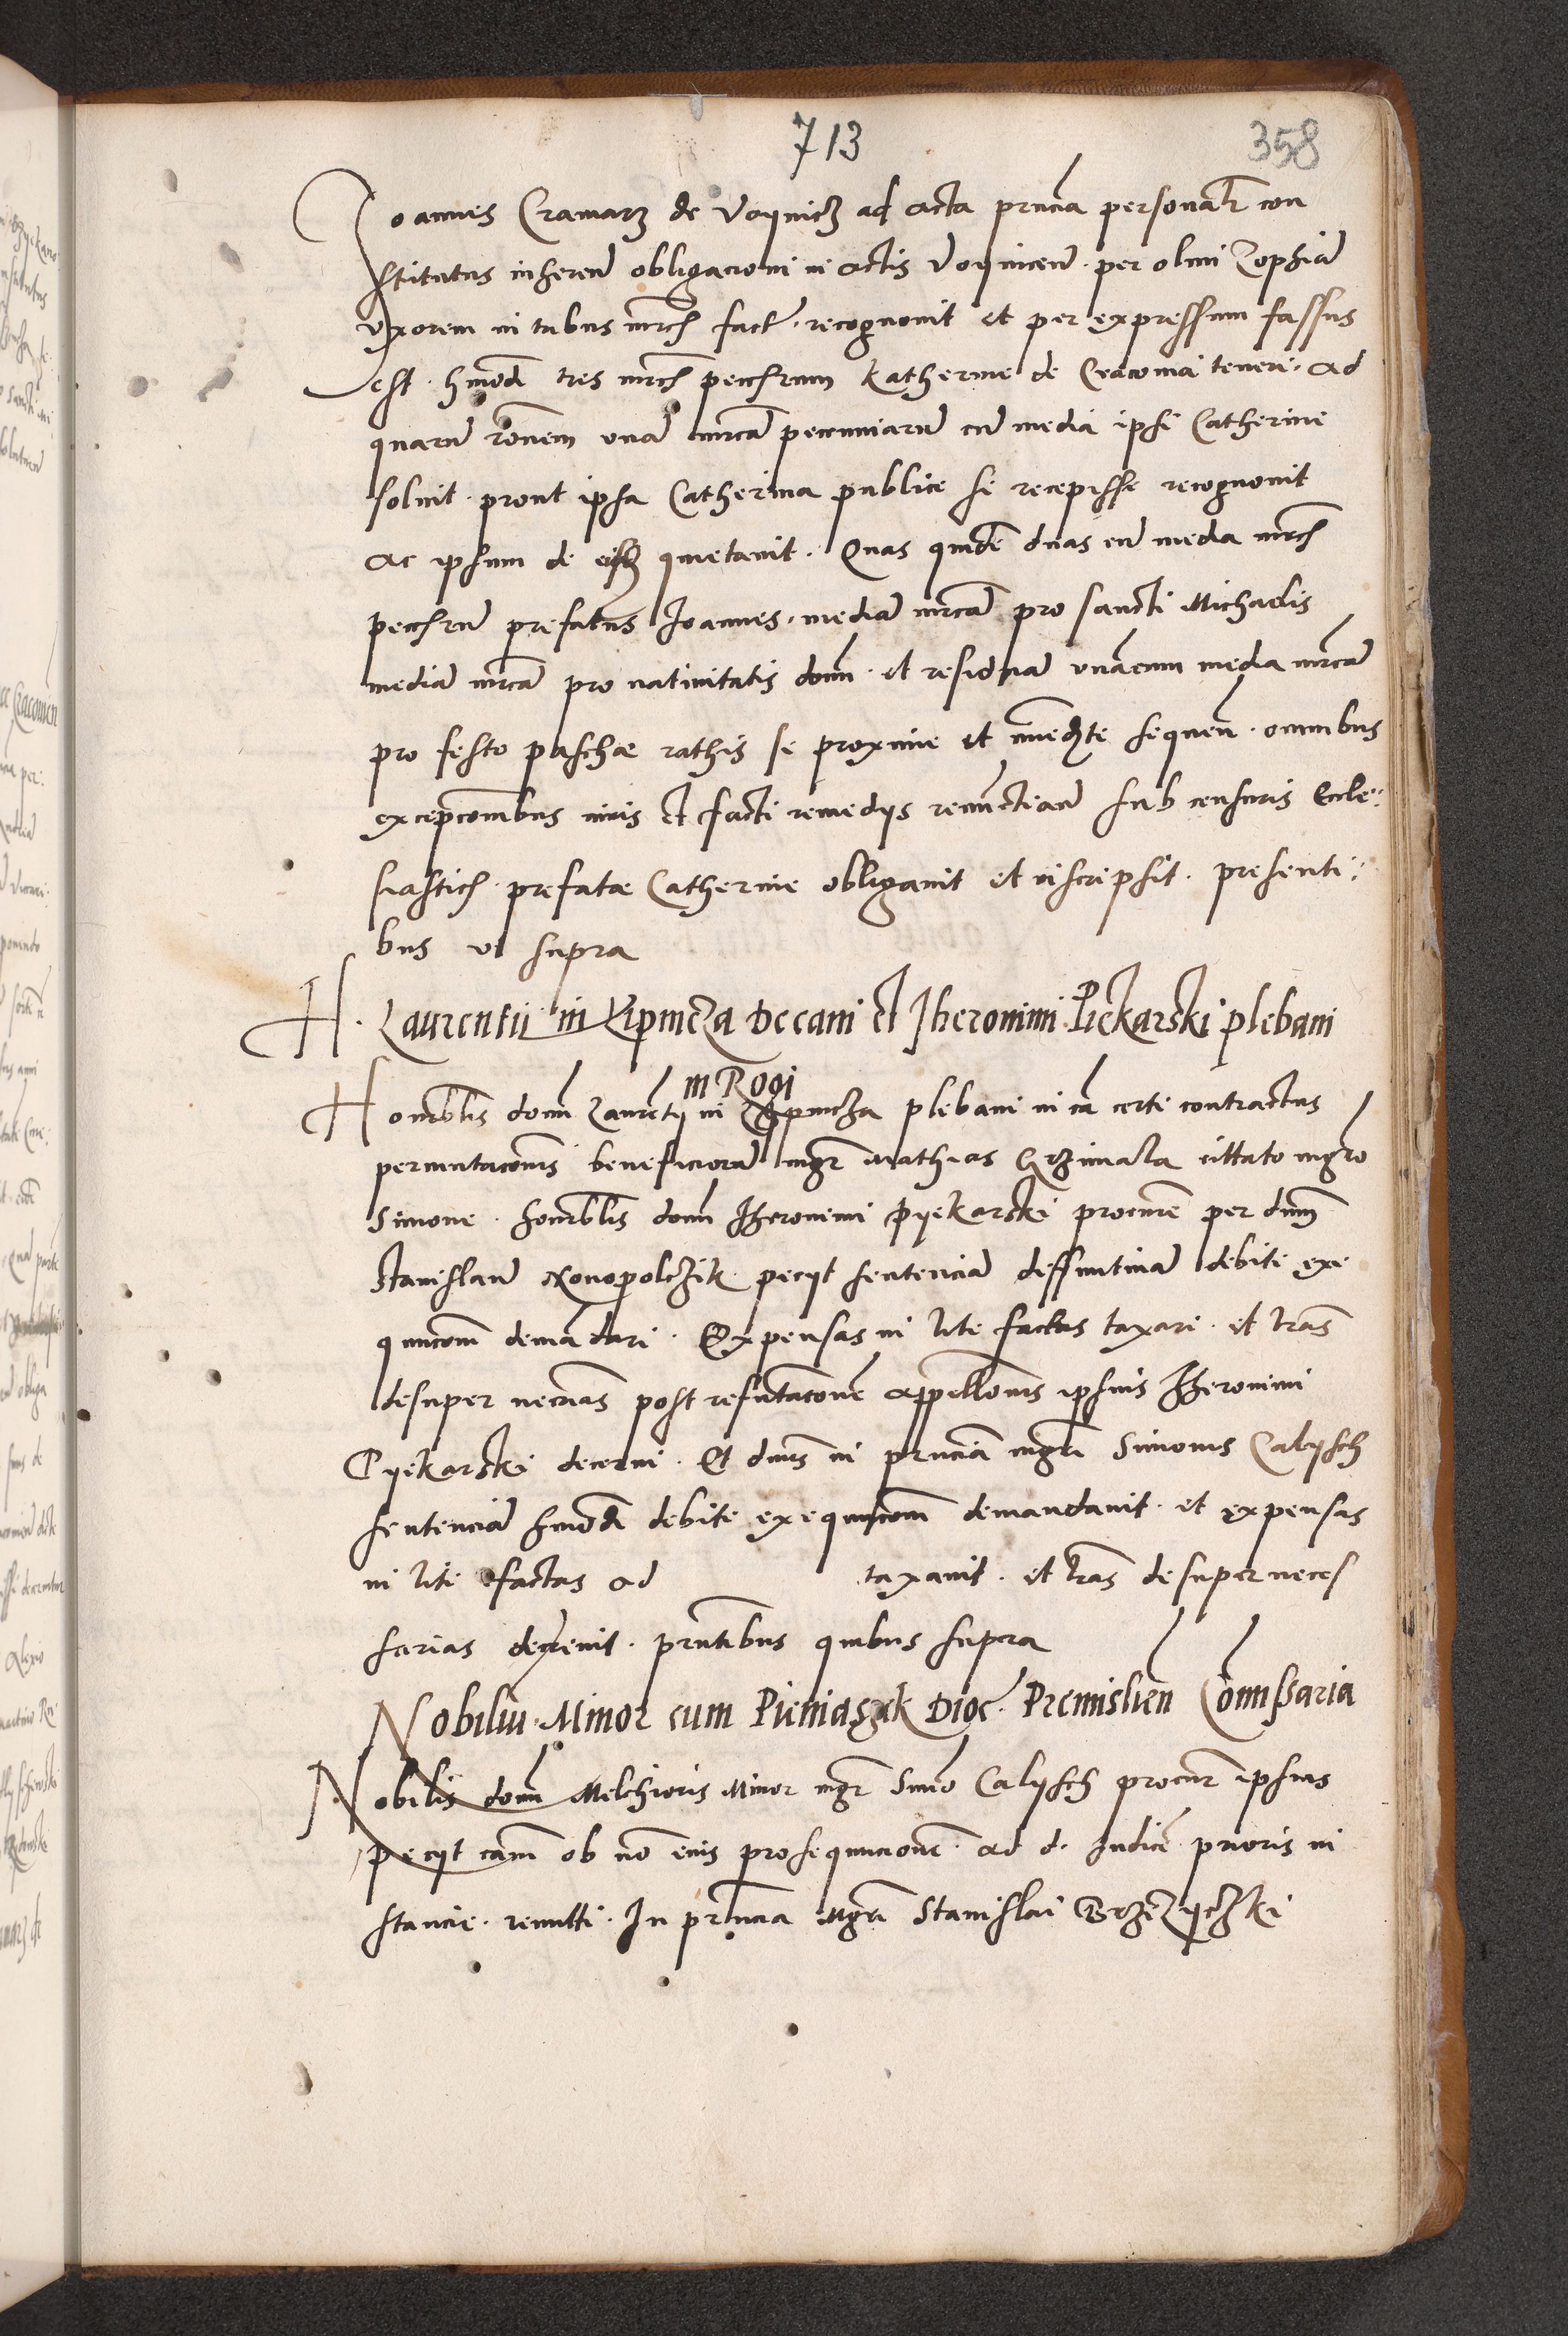 713
358
Joannes Cramarz de Voynicz ad acta prncia personalr con
stitutus inheren obligacioni in actis Voynicen. per olim Zophia
uxorem in tribus mrcis facte. recognovit et per expressum fassus
est. hmodi tres mrcis peccrum Katherine de Cracovia teneri. ad
quaru ronem una mrca pecunniaru cu media ipsi Catherine
solvit. prout ipsa Catherina publice se recepisse recognovit
ac ipsum de eisdz quietavit. Quas quide duas cu media mrcis
peccru prefatus Joannes. media mrca pro sancti Michaelis
media mrca pro nativitatis domi. et residua unacum media mrca
pro festo paschæ rathis se proxime et immediate sequen. omnibus
excepcombus iuris et facti remedijs renunctian sub censuris Eccle:
siasticis. prefatæ Catherine obligavit et inscripsit. presenti:
bus ut supra
H. Laurentii in Lipnicza Decani et Iheronimi Piekarski plebani
in Rogi
Honorblis domi Laurentij in Lypnicza plebani in ca certi contractus
permutacomis beneficioru mgr Mathias Grzimala cittato mgro
Simone. honorblis domi Iheronimi Pyekarski procure per dum
Stanislau Konopolczik. peciit sentencia diffinitiva debite exe
qucioni demandari. Expensas in lite factas taxari. et lras
desuper necrias post refutacone appellonis ipsius Iheronimi
Pyekarski decerni. Et dnus in prncia mgri Simonis Calysch
sentencia hmodi debite exequcioni demandavit. et expensas
in lite factas ad taxavit. et lras desuper neces
sarias decrevit. prntibus quibus supra
Nobiliu. Minor cum Pieniazek Dioc. Premislien Comissaria
Nobilis domi Melchioris Minor mgr Simo Calysch procur ipsius
peciit cam ob no eius prosequcione. ad d. Judice prioris in
stancie. remitti. In prncia Mgri Stanislai Brzezyczki